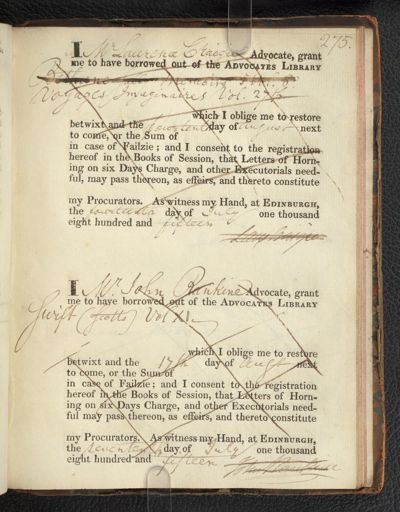 275.
I Mr Laurence Craigie Advocate, grant
me to have borrowed out of the ADVOCATES LIBRARY
Voyages Imaginaires Vol. 27
which I oblige me to restore
betwixt and the day of August next
to come, or the Sum of
in case of Failzie; and I consent to the registration
hereof in the Books of Session, that Letters of Horn-
ing on six Days Charge, and other Executorials need-
ful, may pass thereon, as effeirs, and thereto constitute
my Procurators. As witness my Hand, at EDINBURGH,
the day of July one thousand
eight hundred and fifteen
I Mr John Rankine Advocate, grant
me to have borrowed out of the ADVOCATES LIBRARY
Swift (Scotts) Vol XI.
which I oblige me to restore
betwixt and the 17th day of Augt next
to come, or the Sum of
in case of Failzie; and I consent to the registration
hereof in the Books of Session, that Letters of Horn-
ing on six Days Charge, and other Executorials need-
ful may pass thereon, as effeirs, and thereto constitute
my Procurators. As witness my Hand, at EDINBURGH,
the Seventeenth day of July one thousand
eight hundred and fifteen John Rankine